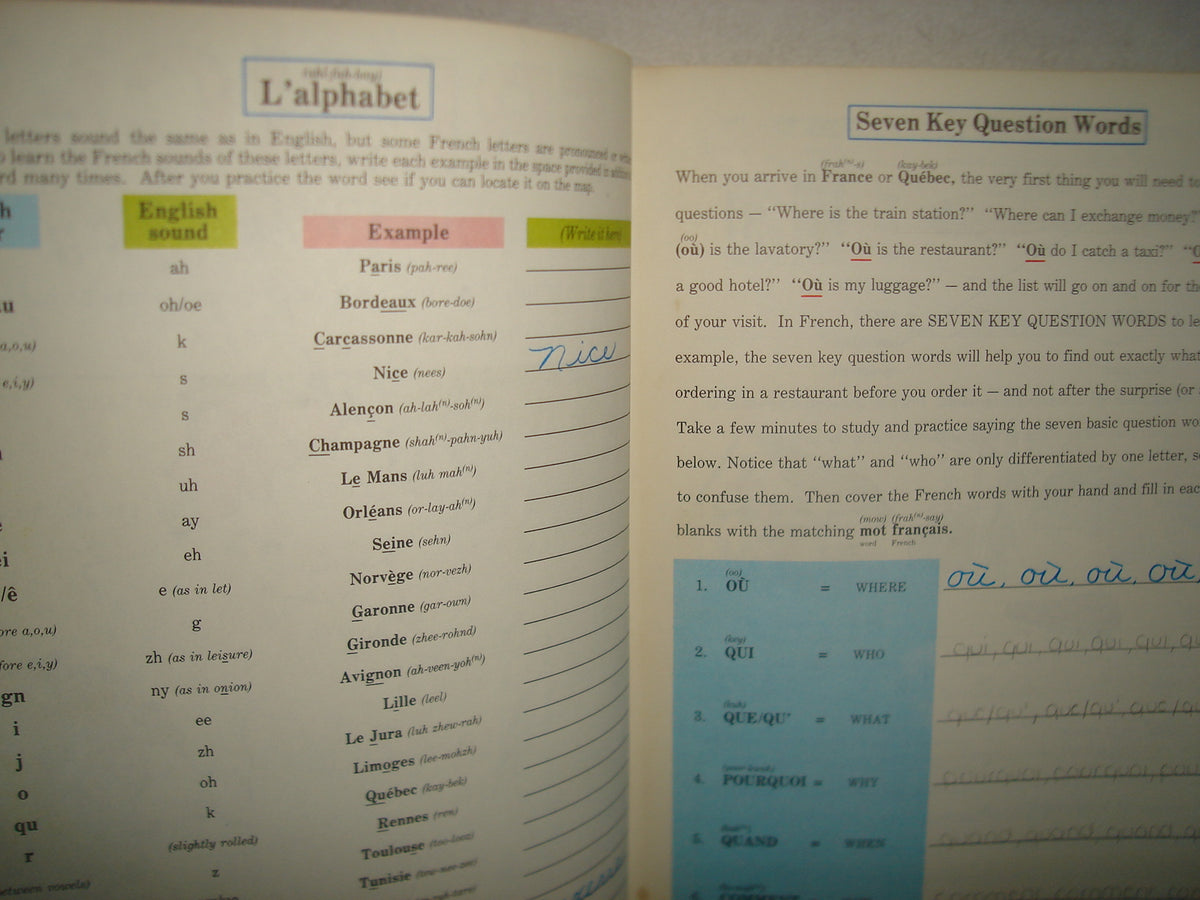 L'alphabet
letters sound the same as in English, but some French letters are pronounced
learn the French sounds of these letters, write each example in the space provided in
many times. After you practice the word see if you can locate it on the map.
English sound Example (Write it here)
ah Paris (pah-ree)
oh/oe Bordeaux (bore-doe)
a,o,u) k Carcassonne (kar-kah-sohn)
e,i,y) s Nice (nees) Nice
s Alençon (ah-lah(n)-soh(n))
sh Champagne (shah(n)-pahn-yuh)
uh Le Mans (luh mah(n))
ay Orléans (or-lay-ah(n))
ei eh Seine (sehn)
/ê e (as in let) Norvège (nor-vezh)
a,o,u) g Garonne (gar-own)
e,i,y) zh (as in leisure) Gironde (zhee-rohnd)
gn ny (as in onion) Avignon (ah-veen-yoh(n))
i ee Lille (leel)
j zh Le Jura (luh zhew-rah)
o oh Limoges (lee-mohzh)
qu k Québec (kay-bek)
r (slightly rolled) Rennes (ren)
between vowels) z Toulouse (too-looz)
Tunisie
Seven Key Question Words
(frah(n)-s) (kay-bek)
When you arrive in France or Québec, the very first thing you will need to
questions — “Where is the train station?” “Where can I exchange money?”
(oo)
(où) is the lavatory?” “Où is the restaurant?” “Où do I catch a taxi?”
a good hotel?” “Où is my luggage?” — and the list will go on and on for the
of your visit. In French, there are SEVEN KEY QUESTION WORDS to
example, the seven key question words will help you to find out exactly what
ordering in a restaurant before you order it — and not after the surprise (or
Take a few minutes to study and practice saying the seven basic question
below. Notice that “what” and “who” are only differentiated by one letter,
to confuse them. Then cover the French words with your hand and fill in each
(mow) (frah(n)-say)
blanks with the matching mot français.
word French
(oo)
1. OÙ = WHERE où, où, où, où,
(key)
2. QUI = WHO qui, qui, qui, qui, qui,
(kuh)
3. QUE/QU' = WHAT que/qu', que/qu', que/
4. POURQUOI = WHY pourquoi, pourquoi,
5. QUAND = WHEN quand, quand, quand,